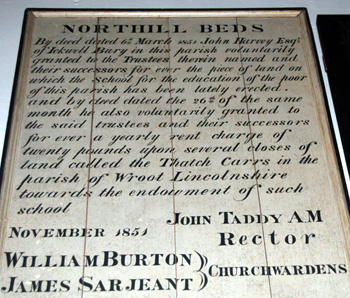 NORTHILL BEDS
By deed dated 6th March 1851 John Harvey Esqr
of Ickwell Bury in this parish voluntarily
granted to the Trustees therein named and
their successors for ever the piece of land on
which the school for the education of the poor
of this parish has been lately erected.
and by deed dated the 26th of the same
month he also voluntarily granted to
the said trustees and their successors
for ever a yearly rent charge of
twenty pounds upon several closes of
land called the Thatch Carrs in the
parish of Wroot Lincolnshire
towards the endowment of such
school
JOHN TADDY A.M
NOVEMBER 1851 Rector
WILLIAM BURTON
JAMES SARJEANT } CHURCHWARDENS